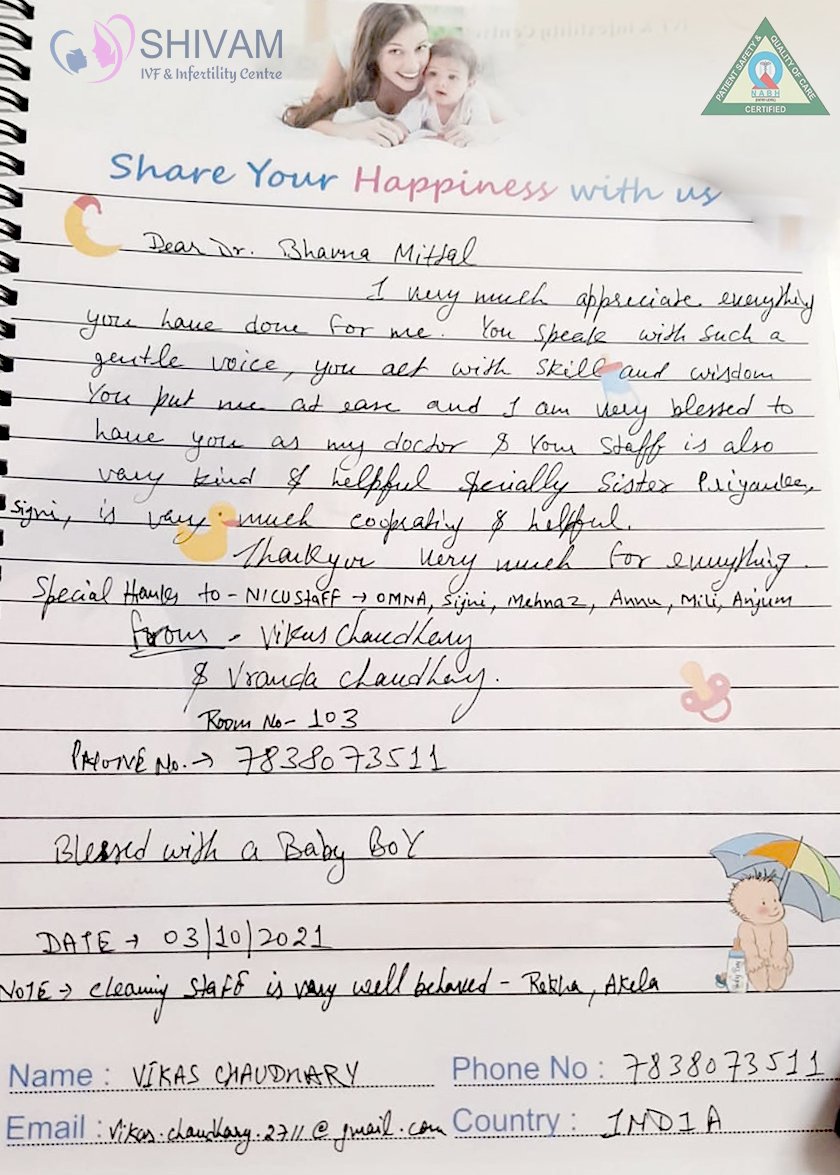 SHIVAM
IVF & Infertility Centre
PATIENT SAFETY & QUALITY OF CARE
NABH
CERTIFIED
Share Your Happiness with us
Dear Dr. Bhavna Mittal
I very much appreciate everything
you have done for me. You speak with such a
gentle voice, you act with skill and wisdom
You put me at ease and I am very blessed to
have you as my doctor & Your staff is also
very kind & helpful specially Sister Priyanka,
Signi, is very much cooprating & helpful.
Thankyou very much for everything.
Special thanks to - NICU Staff → OMNA, Signi, Mehnaz, Annu, Mili, Anjum
from - Vikas Chaudhary
& Vranda Chaudhary.
Room No - 103
PHONE No. → 7838073511
Blessed with a Baby BoY
DATE → 03/10/2021
NOTE → cleaning staff is very well behaved - Rekha, Akela
Name : VIKAS CHAUDHARY Phone No : 7838073511
Email : vikas.chaudhary.2711@gmail.com Country : INDIA